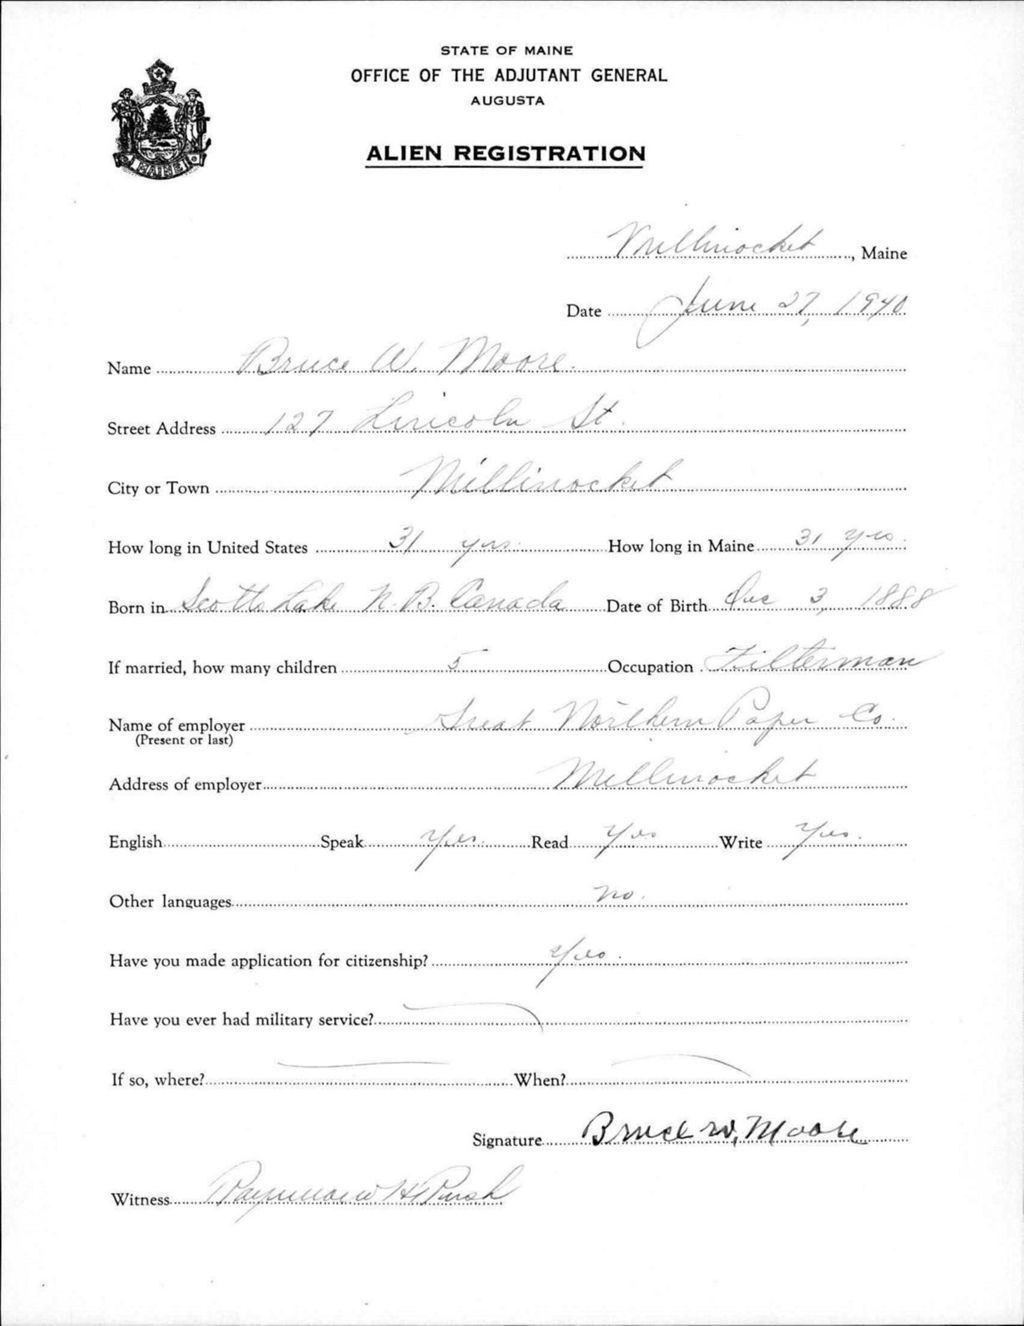 STATE OF MAINE
OFFICE OF THE ADJUTANT GENERAL
AUGUSTA
ALIEN REGISTRATION
MAINE
Millinocket, Maine
Date June 27, 1940.
Name Bruce W. Moore.
Street Address 127 Lincoln St.
City or Town Millinocket
How long in United States 31 yrs. How long in Maine 31 yrs.
Born in Scotts Lake N. B. Canada Date of Birth Dec 3, 1888
If married, how many children 5 Occupation Filterman
Name of employer Great Northern Paper Co.
(Present or last)
Address of employer Millinocket
English Speak Yes. Read Yes Write Yes.
Other languages no.
Have you made application for citizenship? Yes.
Have you ever had military service?
If so, where? When?
Signature Bruce W, Moore
Witness H